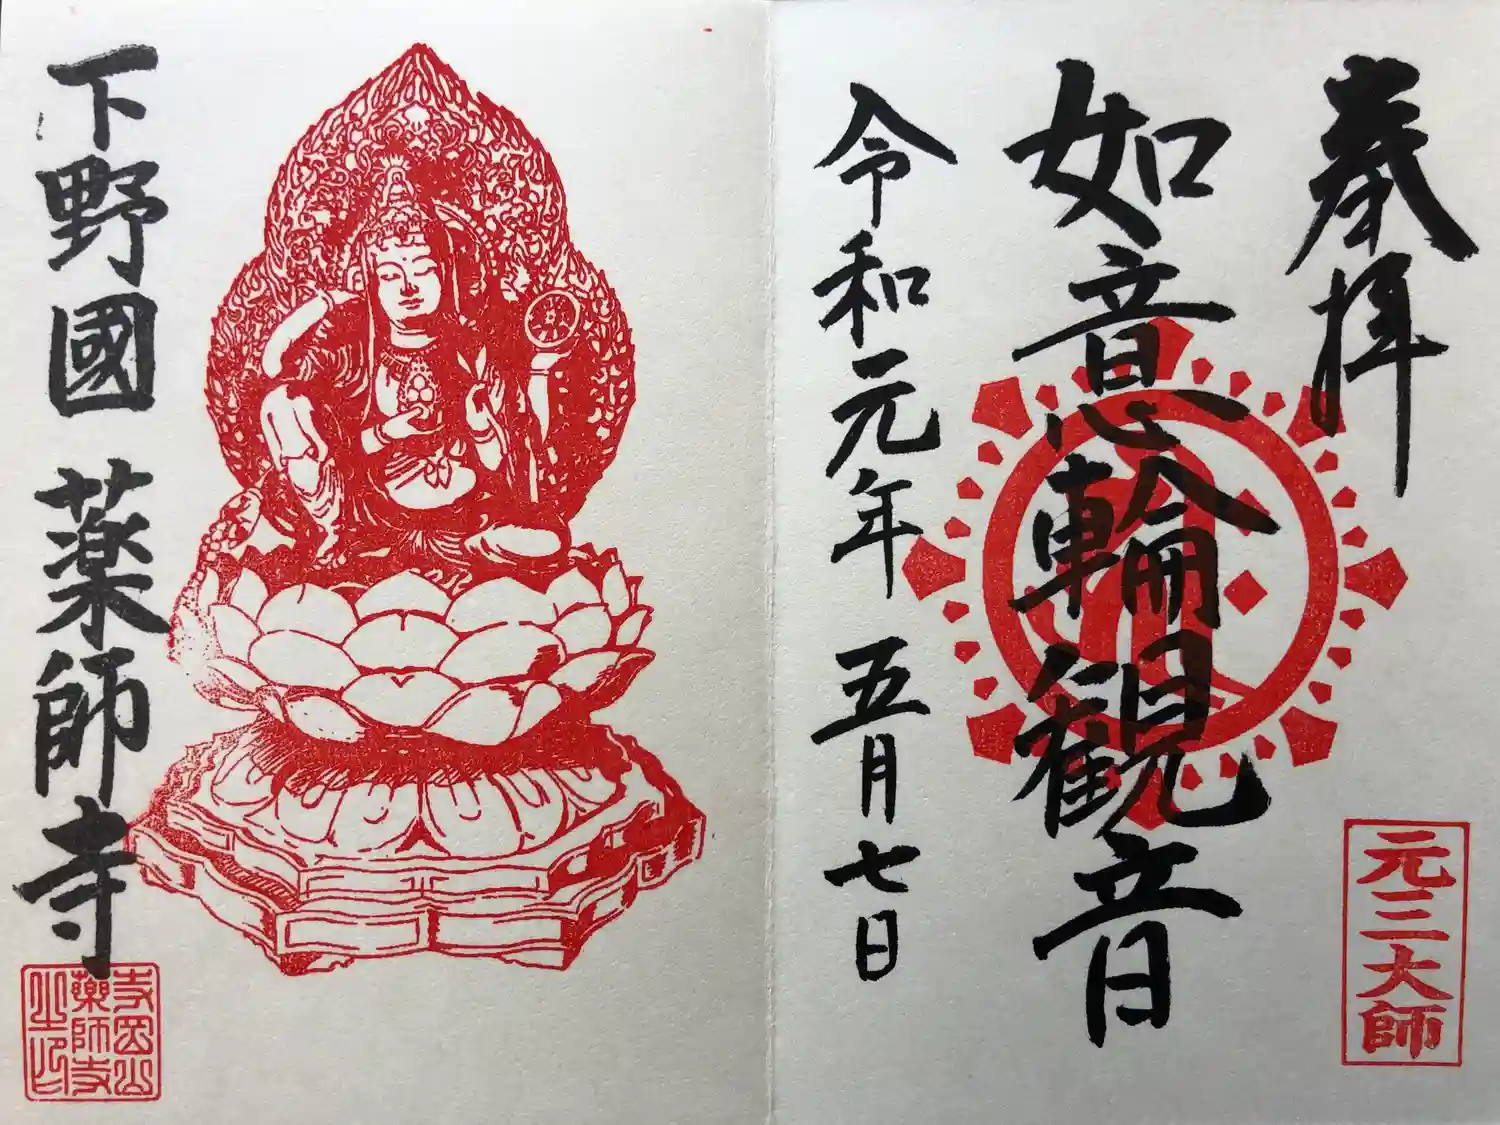 奉拝
元三大師
如意輪観音
令和元年 五月七日
下野國 薬師寺
寺岡山
薬師寺
之印